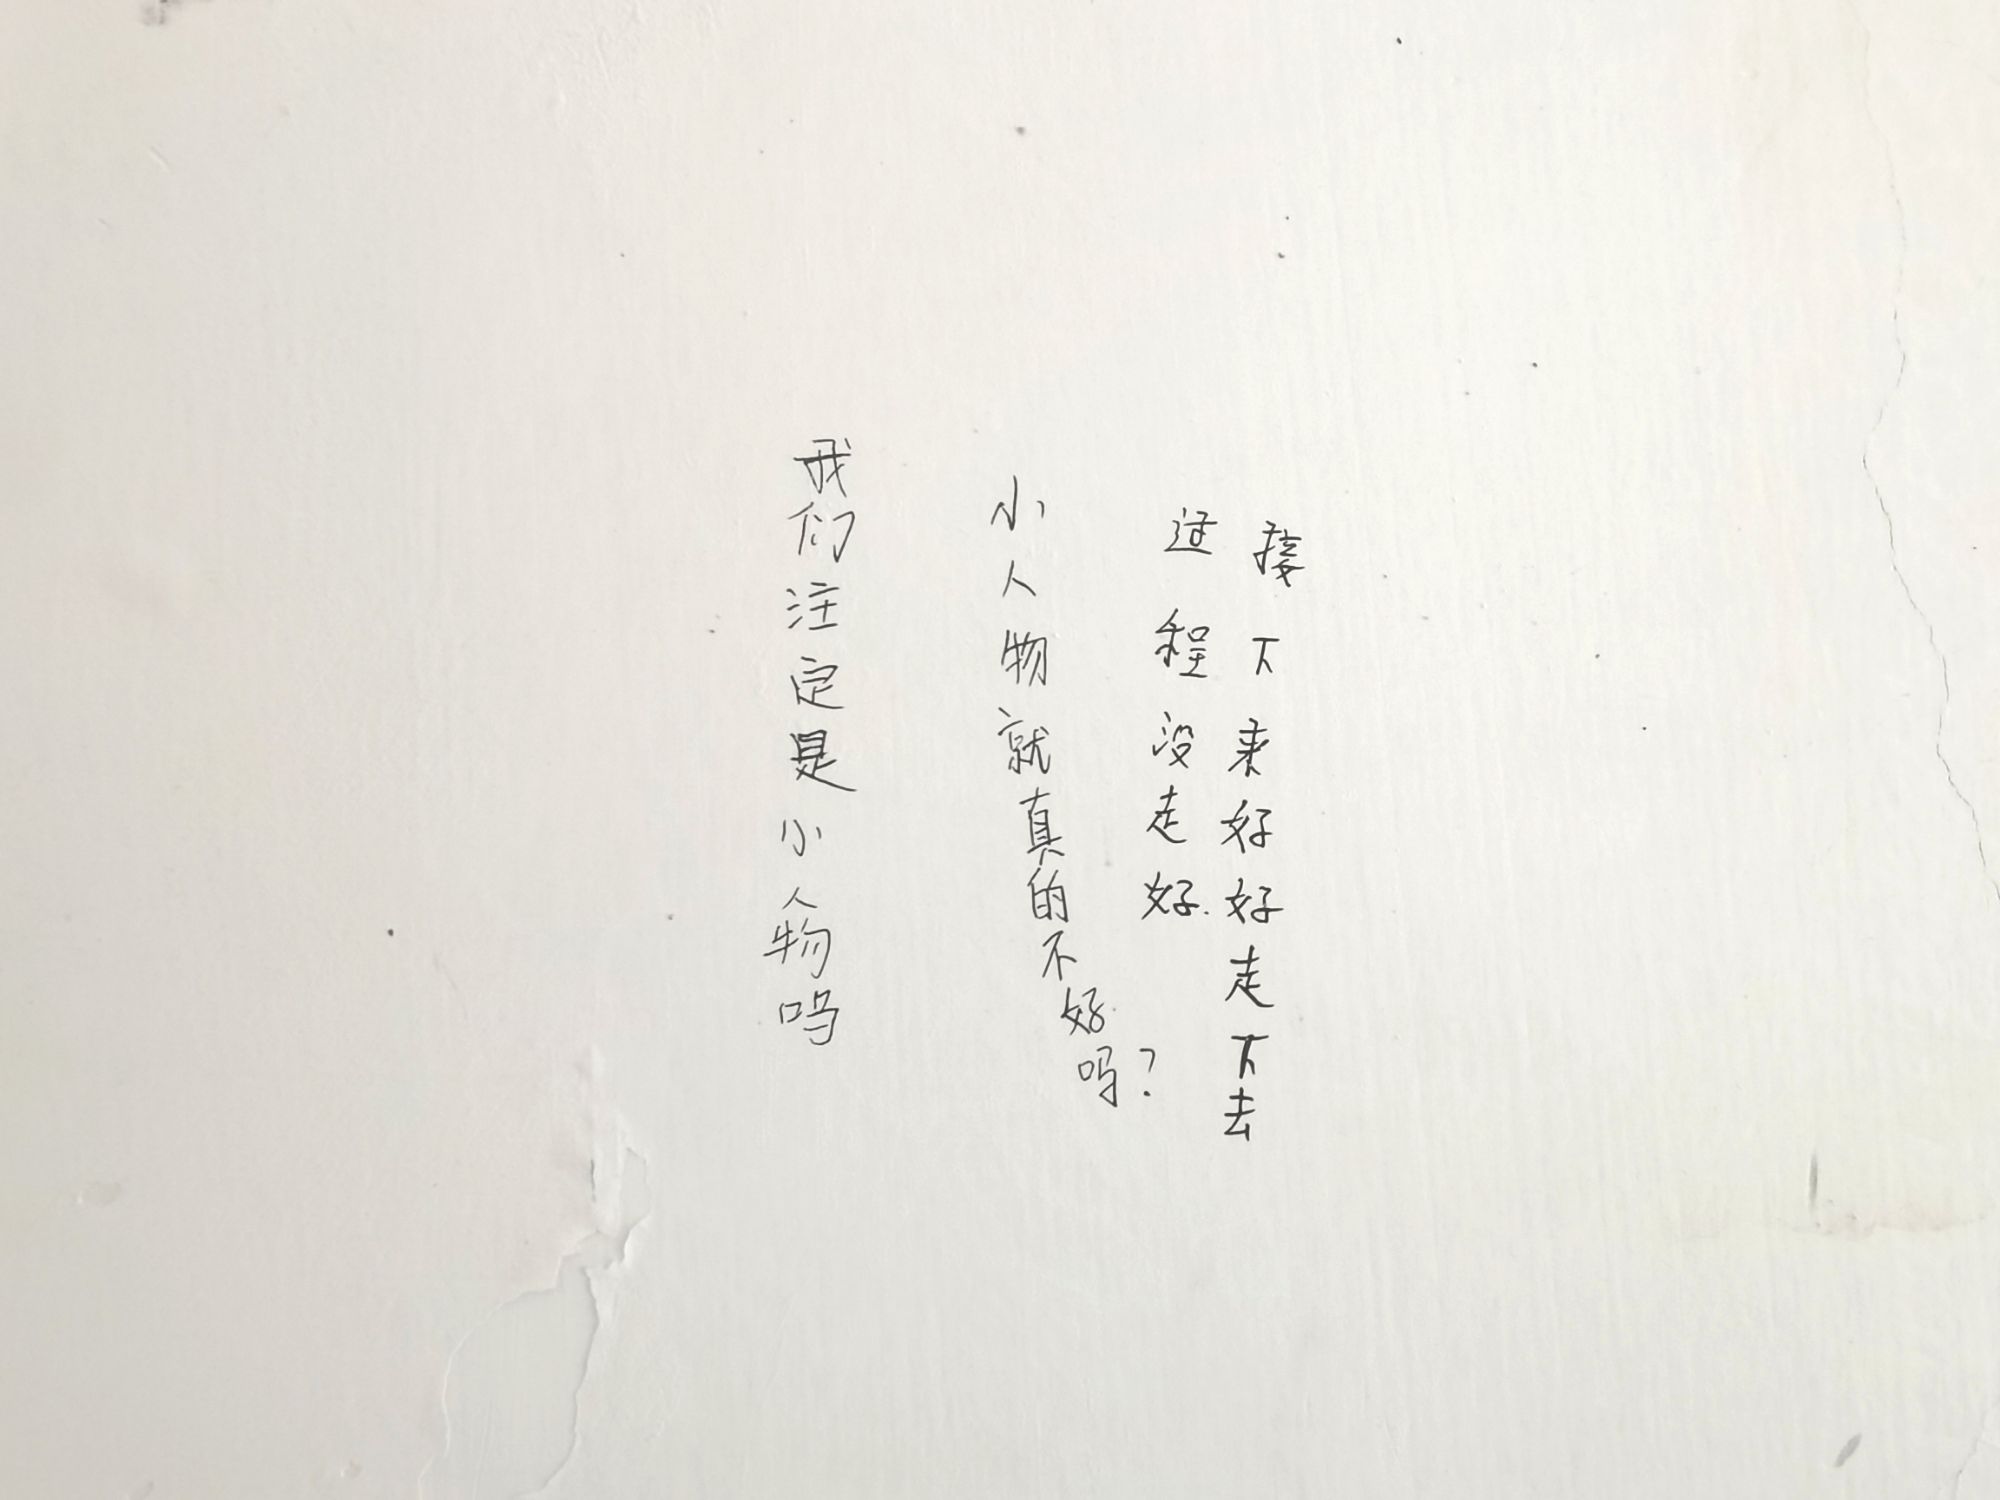 我们注定是小人物吗
小人物就真的不好吗？
过程没走好.
接下来好好走下去